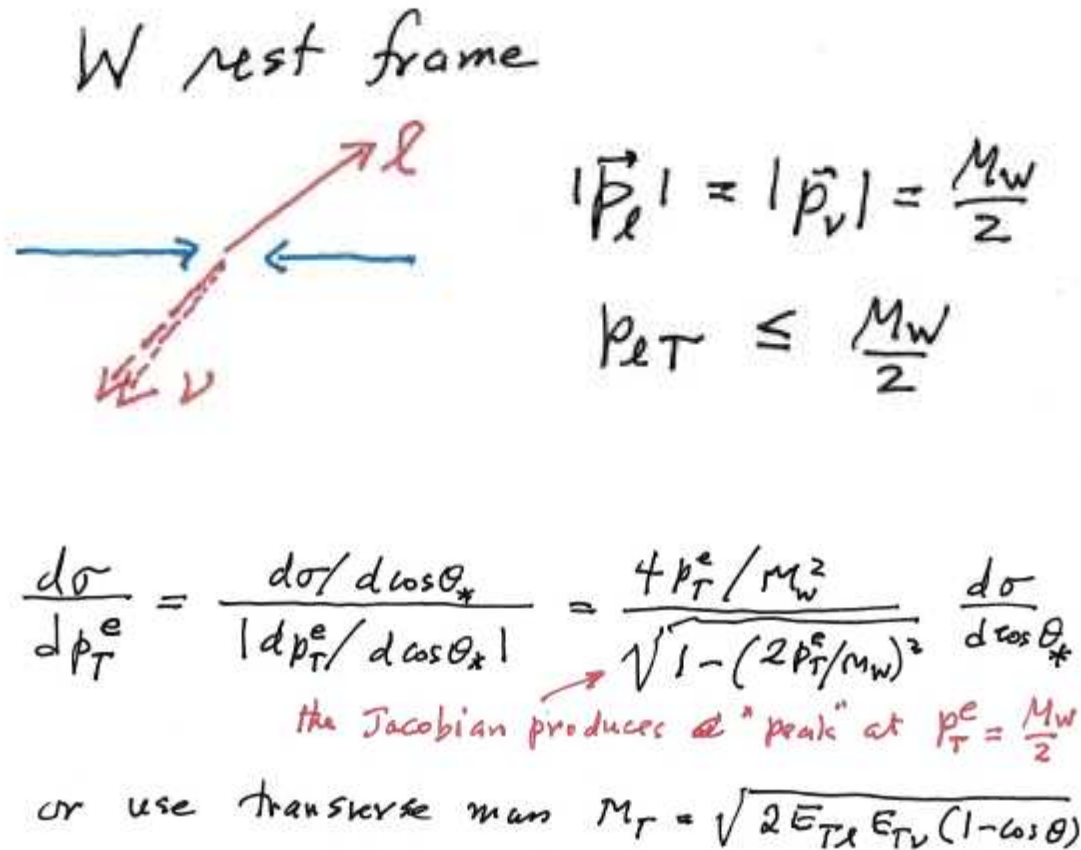 W rest frame
ℓ
ν
|p⃗_ℓ| = |p⃗_ν| = M_W/2
p_ℓT ≤ M_W/2
dσ/dp_T^e = (dσ/dcosθ_*)/|dp_T^e/dcosθ_*| = (4p_T^e/M_W^2)/√(1-(2p_T^e/M_W)^2) dσ/dcosθ_*
the Jacobian produces a "peak" at p_T^e = M_W/2
or use transverse mass M_T = √(2E_Tℓ E_Tν (1-cosθ))